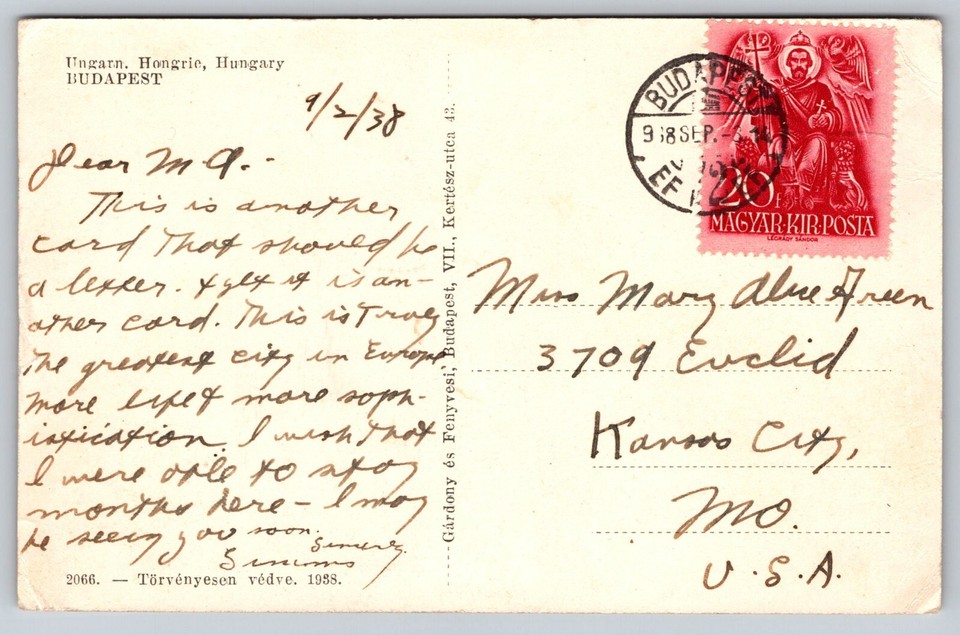 Ungarn. Hongrie, Hungary
BUDAPEST
9/2/38
Dear M A.-
This is another
card that should be
a letter. + yet it is an-
other card. This is truly
the greatest city in Europe
more life + more soph-
istication. I wish that
I were able to stay
months here - I may
be seeing you soon.
Sincerely
Simms
2066. — Törvényesen védve. 1938.
Gárdony és Fenyvesi, Budapest, VII., Kertész-utca 43.
BUDAPEST
938 SEP.
MAGYAR·KIR·POSTA
20f
LÉGRÁDY SÁNDOR
Miss Mary Alice Green
3709 Euclid
Kansas City,
MO.
U.S.A.